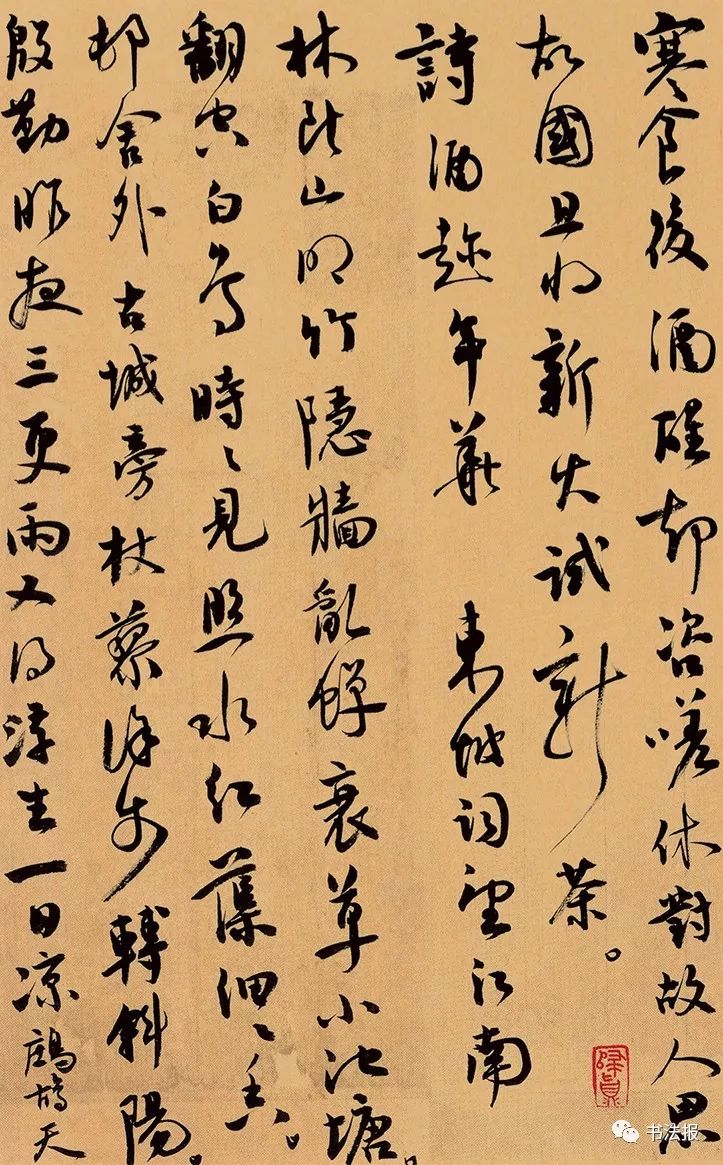 寒食後酒醒却咨嗟休對故人思
故國且將新火試新茶。
詩酒趁年華 東坡詞望江南
林斷山明竹隱牆亂蟬衰草小池塘。
翻空白鳥時〻見照水紅蕖細〻香。
邨舍外古城旁杖藜徐步轉斜陽。
殷勤昨夜三更雨又得浮生一日凉鷓鴣天
书法报